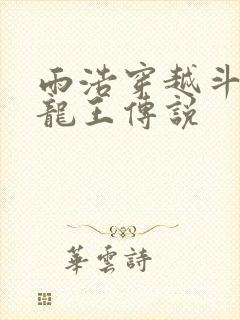 雨浩穿越斗
龍王傳說
華雲詩